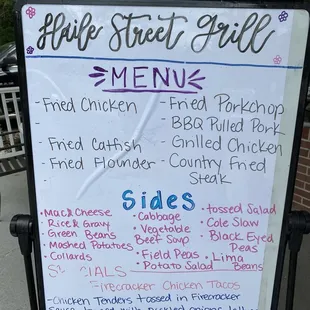 Haile Street Grill
MENU
-Fried Chicken
-Fried Catfish
-Fried Flounder
-Fried Porkchop
-BBQ Pulled Pork
-Grilled Chicken
-Country Fried
Steak
Sides
•Mac&Cheese
•Rice&Gravy
•Green Beans
•Mashed Potatoes
•Collards
•Cabbage
•Vegetable
Beef Soup
•Field Peas
•Potato Salad
•tossed Salad
•Cole Slaw
•Black Eyed
Peas
•Lima
Beans
Firecracker Chicken Tacos
-Chicken Tenders tossed in Firecracker